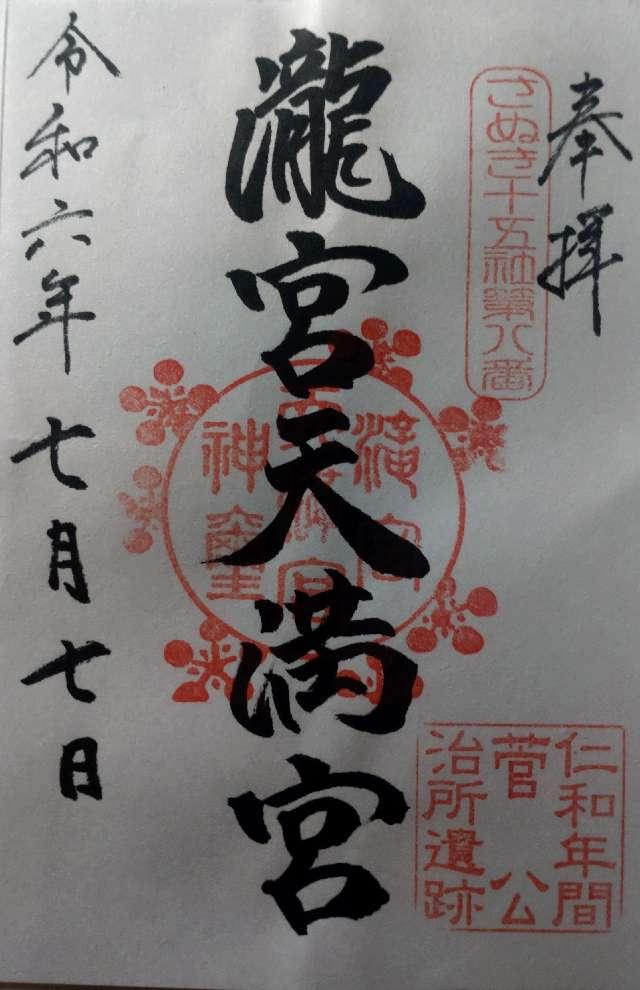 奉拝
さぬき十五社第八番
瀧宮天満宮
仁和年間
菅公
治所遺跡
令和六年七月七日